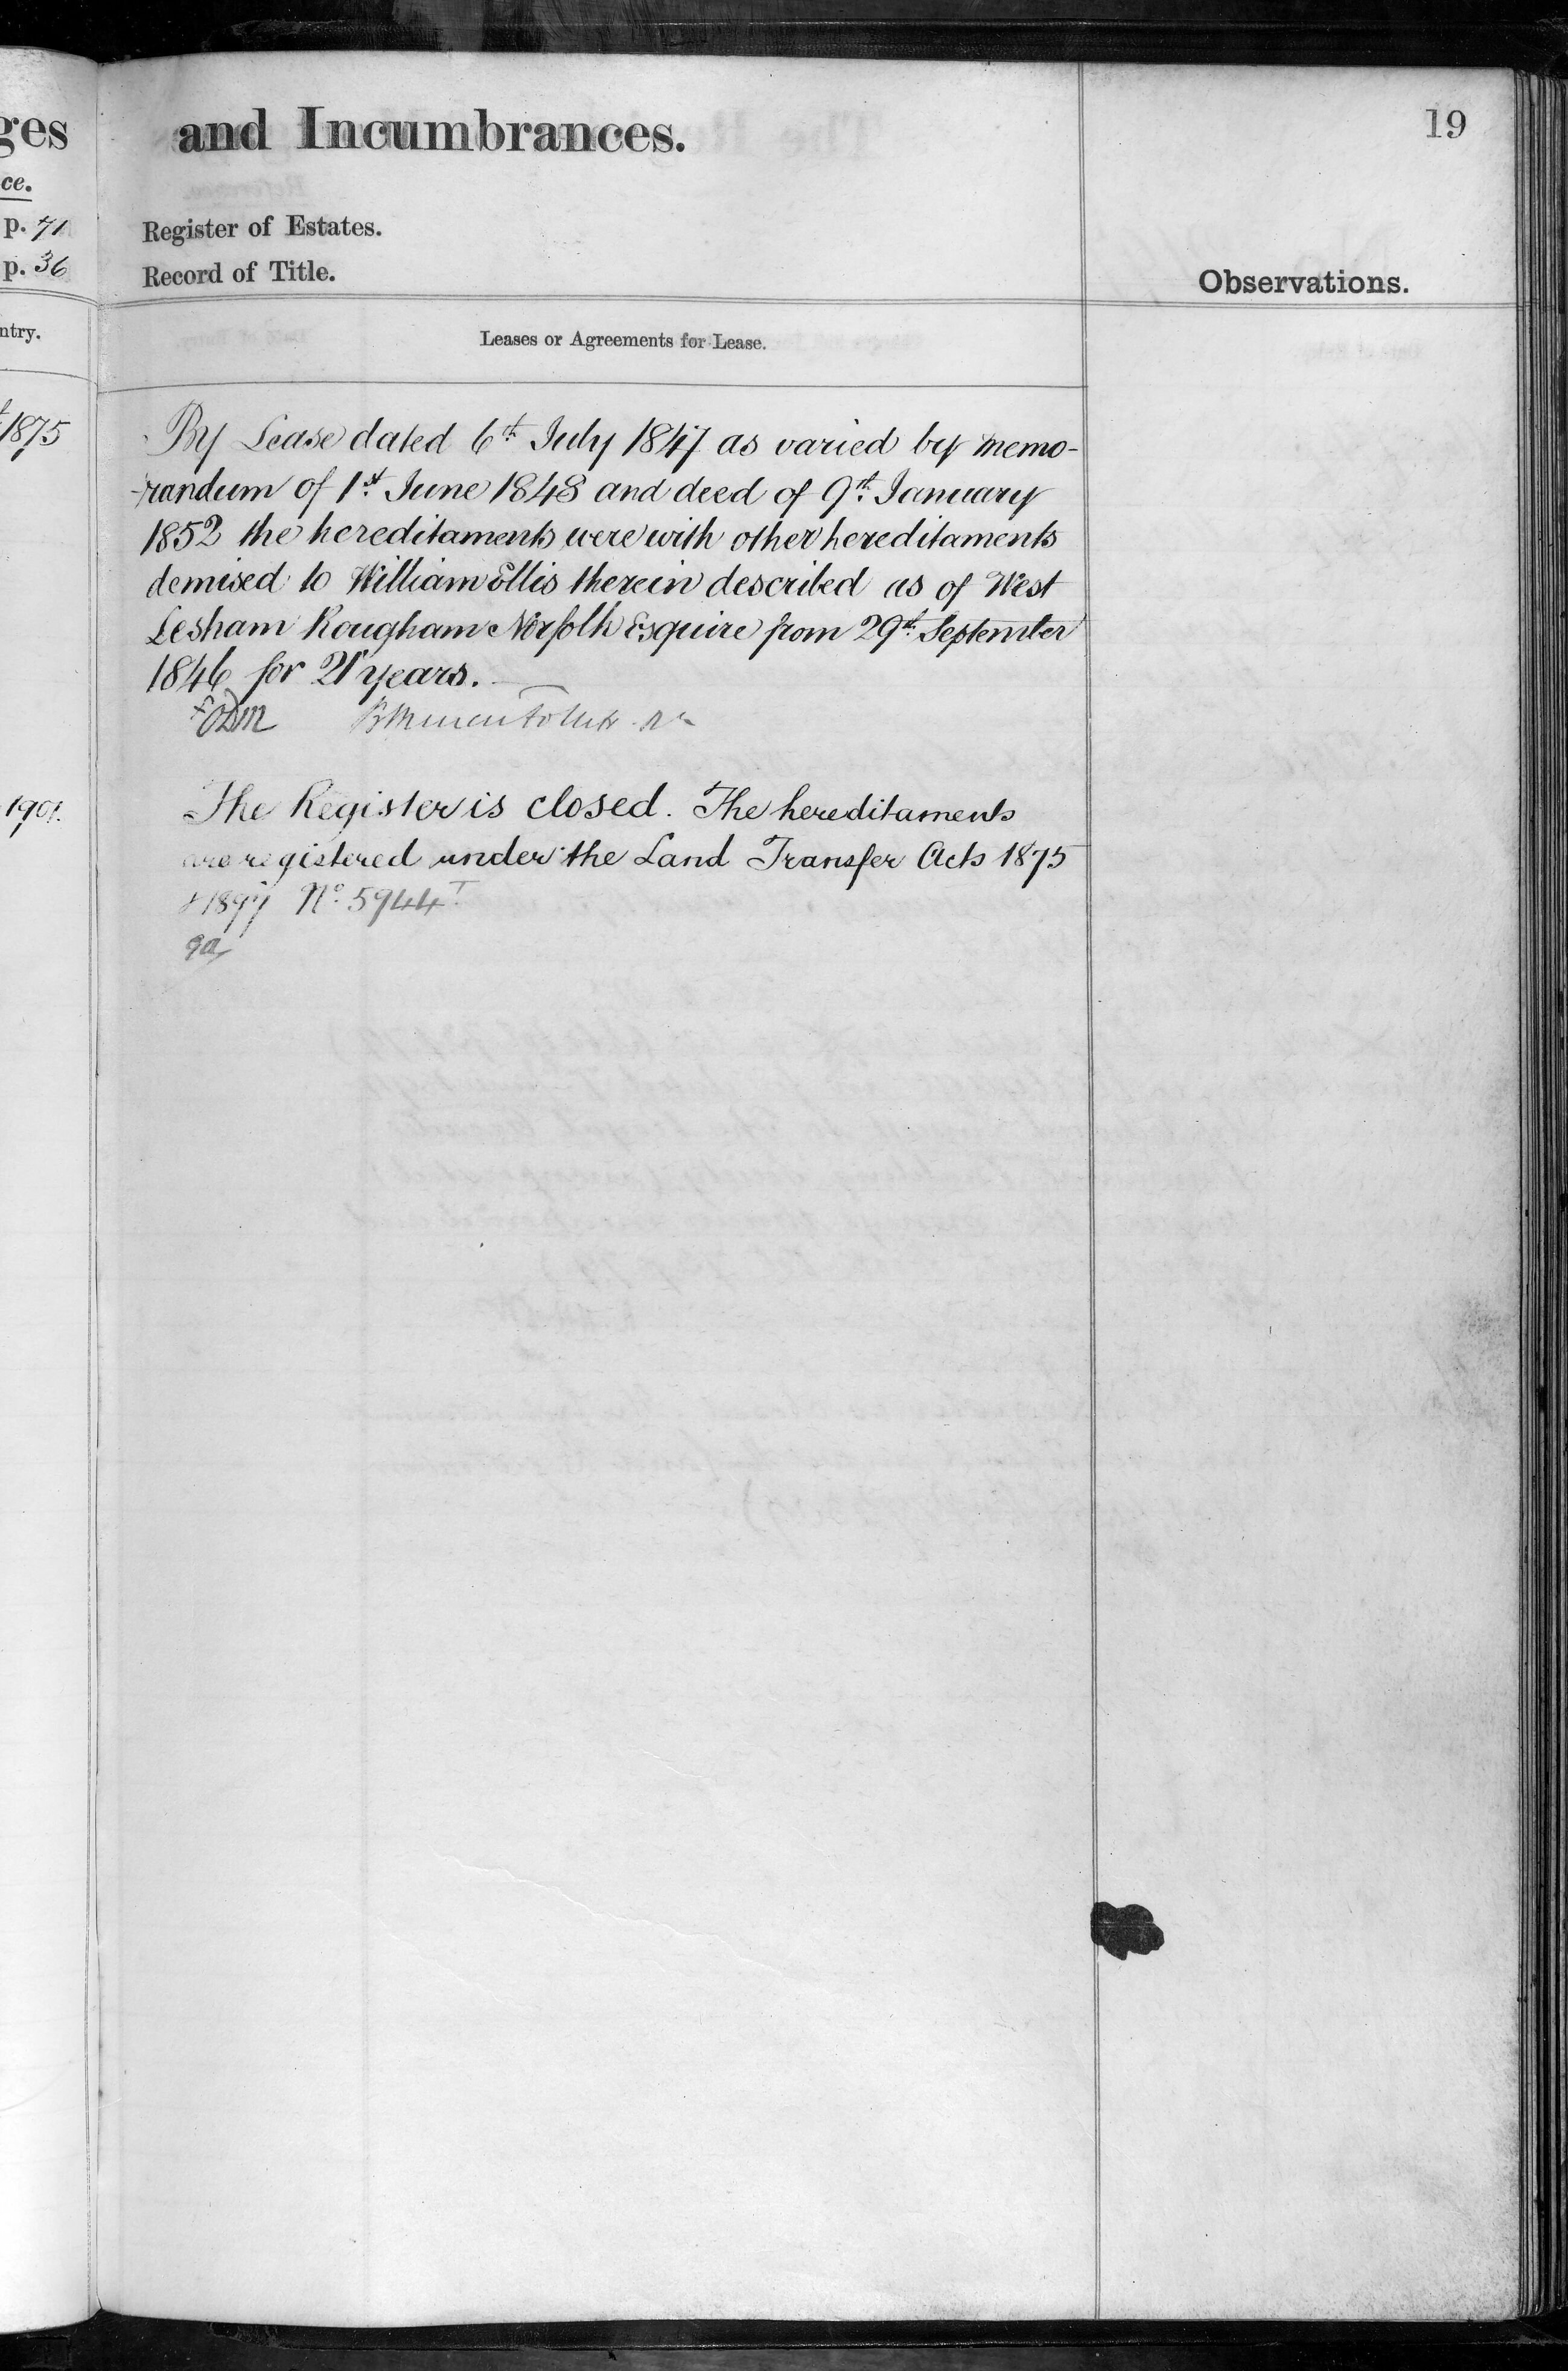 ges
ce.
p. 71
p. 36
ntry.
1875
1901.
and Incumbrances.
19
Register of Estates.
Record of Title.
Observations.
Leases or Agreements for Lease.
By Lease dated 6th July 1847 as varied by memo-
-randum of 1st June 1848 and deed of 9th January
1852 the hereditaments were with other hereditaments
demised to William Ellis therein described as of West
Lesham Rougham Norfolk Esquire from 29th September
1846 for 21 years.
The Register is closed. The hereditaments
are registered under the Land Transfer Acts 1875
& 1897 No. 5944